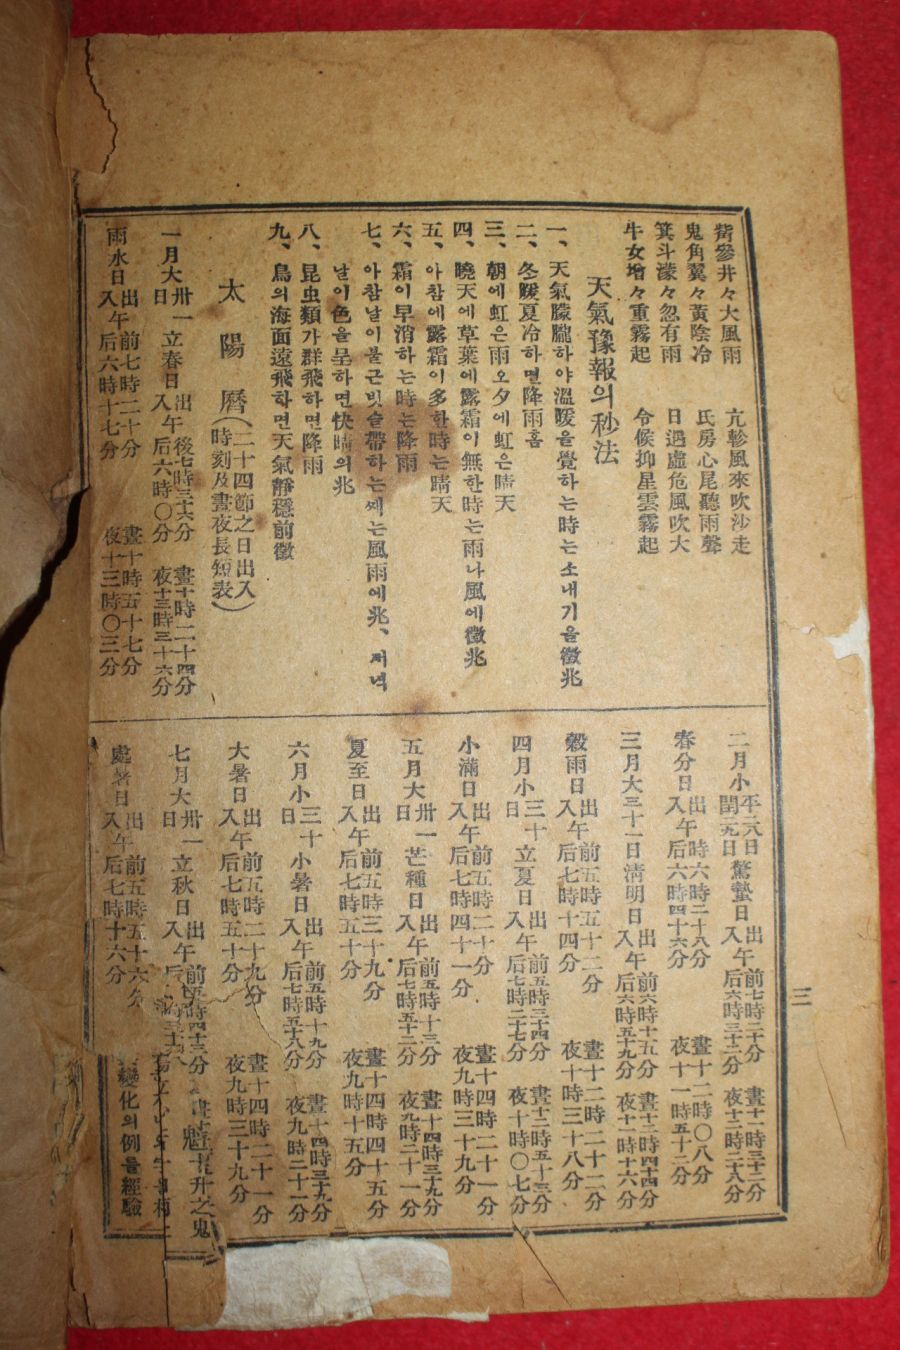 觜參井々大風雨 亢軫風來吹沙走
鬼角翼々黃陰冷 氐房心尾聽雨聲
箕斗濛々忽有雨 日遇虛危風吹大
牛女增々重霧起 令候抑星雲霧起
天氣豫報의 秒法
一、天氣朦朧하야溫暖을覺하는時는소내기을徵兆
二、冬暖夏冷하면降雨홈
三、朝에虹은雨오夕에虹은晴天
四、曉天에草葉에露霜이無한時는雨나風에徵兆
五、아참에露霜이多한時는晴天
六、霜이早消하는時는降雨
七、아참날이불근빗슬帶하는쎄는風雨에兆、저녁
날이色을呈하면快晴의兆
八、昆虫類가群飛하면降雨
九、鳥의海面遠飛하면天氣靜穩前徵
太陽曆(二十四節之日出入時刻及晝夜長短表)
一月大卅一日 立春日 出後七時三十六分 入午后六時〇分 晝十時二十四分 夜十三時三十六分
雨水日 出前七時二十分 入午后六時十七分 晝十時五十七分 夜十三時〇三分
二月小 平六日 閏元九日 驚蟄日 出前七時二十分 入午后六時三十二分 晝十一時三十二分 夜十二時二十八分
春分日 出時六時三十八分 入午后六時四十六分 晝十二時〇八分 夜十一時五十二分
三月大三十一日 清明日 出前六時十五分 入午后六時五十九分 晝十二時四十四分 夜十一時十六分
穀雨日 出前五時五十二分 入午后七時十四分 晝十二時二十二分 夜十時三十八分
四月小三十日 立夏日 出前五時三十四分 入午后七時二十七分 晝十二時五十三分 夜十時〇七分
小滿日 出前五時二十分 入午后七時四十一分 晝十四時二十一分 夜九時三十九分
五月大卅一日 芒種日 出前五時十三分 入午后七時五十二分 晝十四時三十九分 夜九時二十一分
夏至日 出前五時三十九分 入午后七時五十分 晝十四時四十五分 夜九時十五分
六月小三十日 小暑日 出前五時十九分 入午后七時五十八分 晝十四時三十九分 夜九時二十一分
大暑日 出前五時二十九分 入午后七時五十分 晝十四時二十一分 夜九時三十九分
七月大卅一日 立秋日 出前五時四十三分
處暑日 出前五時五十六分 入午后七時十六分
變化의例을經驗
三